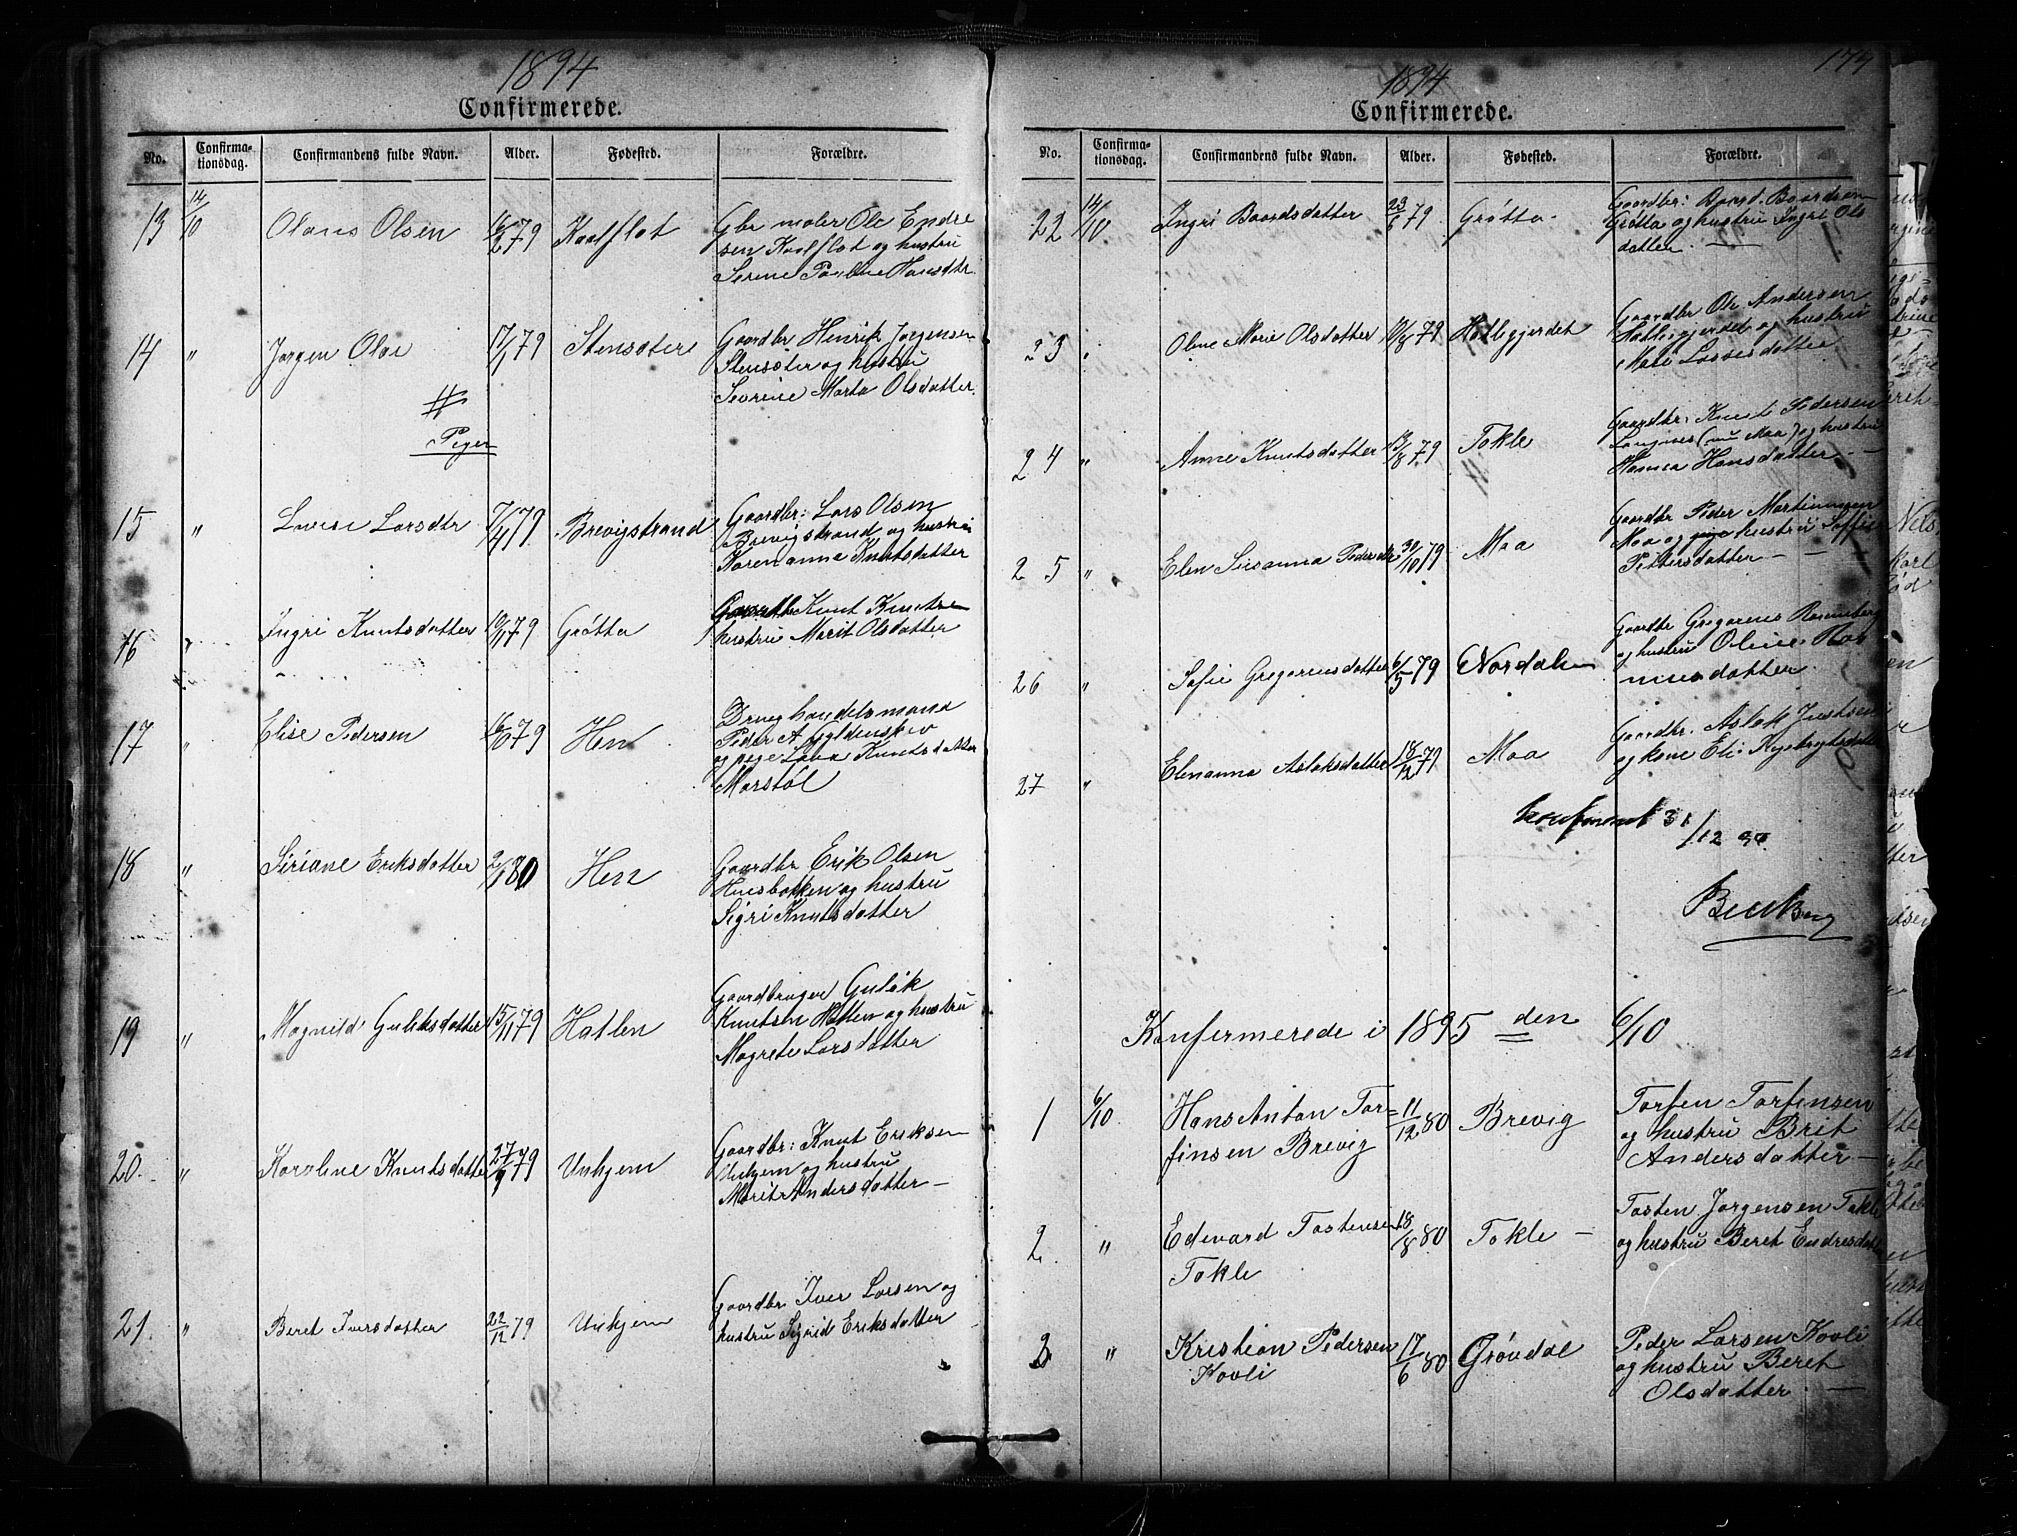 1894
Confirmerede.
No. Confirma-tionsdag. Confirmandens fulde Navn. Alder. Fødested. Forældre.
13 14/10 Olaus Olsen 16/2 79 Kaalflot Gbr maler Ole Endre
sen Kaalflot og hustru
Serine Pauline Hansdtr
14 " Jørgen Olai 17/1 79 Stensøter Gaardbr Henrik Jørgensen
Stensøter og hustru
Severine Marta Olsdatter
Piger
15 " Lovise Larsdtr 7/4 79 Brevigstrand Gaardbr: Lars Olsen
Brevigstrand og hustru
Karenanna Knutsdatter
16 " Ingri Knutsdatter 10/1 79 Grøtta Knut Knutsen
hustru Marit Olsdatter
17 " Elise Pedersen 16/10 79 Hen Drueghandelsmand
Peder A Gyldenskov
og pige Lava Knutsdatter
Marstøl
18 " Siriane Eriksdatter 2/1 80 Hen Gaardbr Erik Olsen
Huusbakken og hustru
Sigri Knutsdatter
19 " Magnild Guleksdatter 15/11 79 Hatlen Gaardbruger Gulek
Knutsen Hatlen og hustru
Magrete Larsdatter
20. " Karoline Knutsdatter 27/9 79 Unhjem Gaardbr: Knut Eriksen
Unhjem og hustru
Marit Andersdatter —
21. " Beret Iversdatter 22/12 79 Unhjem Gaardbr Iver Larsen og
hustru Sigrid Eriksdatter
1894
Confirmerede.
No. Confirma-tionsdag. Confirmandens fulde Navn. Alder. Fødested. Forældre.
22 14/10 Ingri Baardsdatter 23/6 79 Grøtta Gaardbr: Baard Baardsen
Grøtta og hustru Ingri Ols
datter —
23 " Oline Marie Olsdatter 10/8 79 Hatlegjerdet Gaardbr Ole Andersen
Hatlegjerdet og hustru
Mali Lassesdatter
24 " Anne Knutsdatter 13/8 79 Tokle Gaardbr: Knut Pedersen
Langnes (nu Maa) og hustru
Hanna Hansdatter —
25 " Elen Susanna Pedersdtr 30/10 79 Maa Gaardbr Peder Martinusen
Maa og hustru Soffie
Pettersdatter — —
26 " Sofie Gregoriusdatter 6/5 79 Nordalen Gaardbr Gregorius Rasmusberg
og hustru Oline Ras
musdatter.
27 " Elenanna Aslaksdatter 18/12 79 Maa Gaardbr. Aslak Justsen
og kone Eli
Konfereret 31/12 94
Konfermerede i 1895 den 6/10
1 6/10 Hans Anton Tor= 11/12 80 Brevig Torfen Torfensen
finsen Brevig og hustru Brit
Andersdatter —
2 " Edevard Tostensen 18/8 80 Tokle — Tosten Jørgensen Tokle
Tokle og hustru Beret Endresdatter
3 " Kristian Pedersen 17/6 80 Grøvdal Peder Larsen Kovli
Kovli og hustru Beret
Olsdatter. —